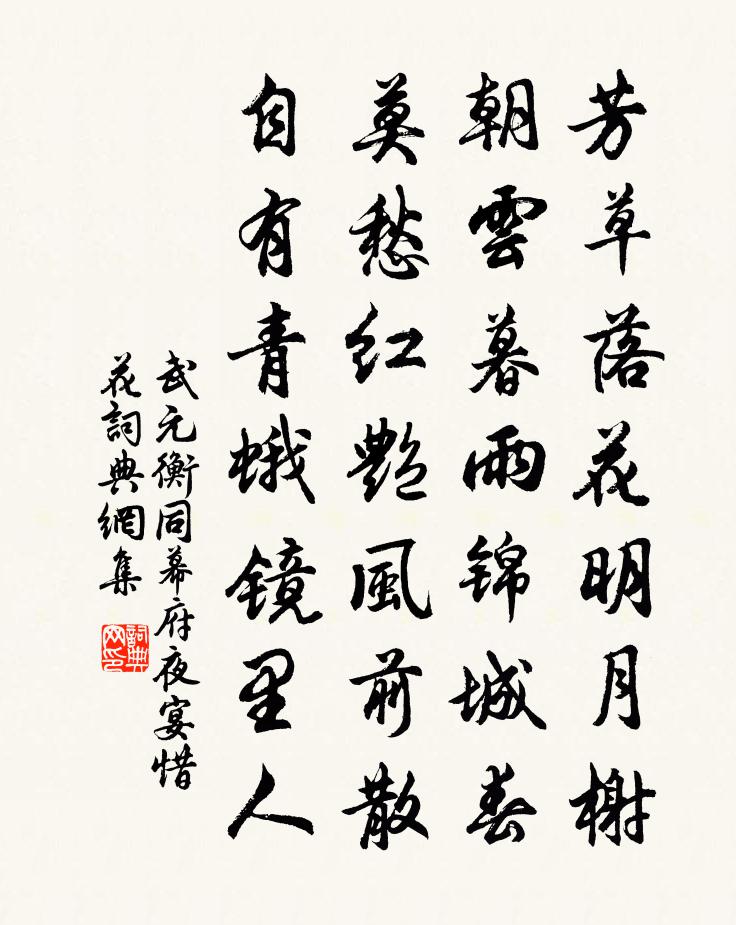 芳草落花明月榭
朝雲暮雨锦城春
莫愁红艷風前散
自有青蛾镜里人
武元衡同幕府夜宴惜
花詞典網集
詞典网印